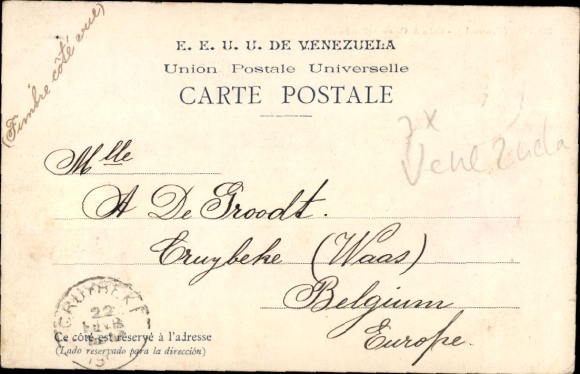 (Timbre côté vue)
E. E. U. U. DE VENEZUELA
Union Postale Universelle
CARTE POSTALE
7x
Venezuela
Mlle
A De Groodt.
Cruybeke (Waas)
Belgium
Europe.
CRUYBEKE
22
Ce côté est réservé à l'adresse
(Lado reservado para la dirección)